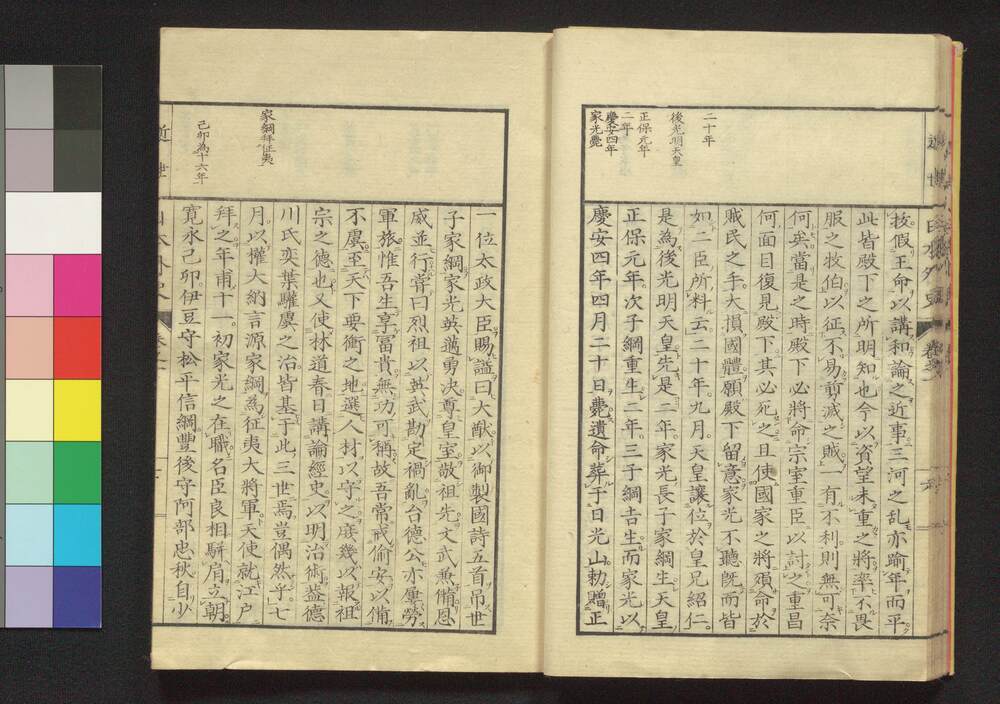 二十年
後光明天皇
正保元年
二年
慶安四年
家光薨
牧假王命以講和論之近事三河之乱亦踰年而平
此皆殿下之所明知也今以資望未重之將率不畏
服之牧伯以征不易剪滅之賊一有不利則無可奈
何矣當是之時殿下必將命宗室重臣以討之重昌
何面目復見殿下其必死之且使國家之將殞命於
賊民之手大損國體願殿下留意家光不聽既而皆
如二臣所料云二十年九月天皇讓位於皇兄紹仁
是為後光明天皇先是二年家光長子家綱生天皇
正保元年次子綱重生二年三子綱吉生而家光以
慶安四年四月二十日薨遺命葬于日光山勅贈正
家綱拜征夷
己卯為十六年
一位太政大臣賜謚曰大猷以御製國詩五首吊世
子家綱家光英邁勇決尊皇室敬祖先文武兼脩恩
威並行嘗曰烈祖以英武勘定禍亂台德公亦屢勞
軍旅惟吾生享冨貴無功可稱故吾常戒偷安以備
不虞至天下要衝之地選人材以守之庶幾以報祖
宗之德也又使林道春日講論經史以明治術蓋德
川氏奕葉驩虞之治皆基于此三世焉豈偶然乎七
月以權大納言源家綱為征夷大將軍天使就江戸
拜之年甫十一初家光之在職名臣良相駢肩立朝
寛永己卯伊豆守松平信綱豐後守阿部忠秋自少
近世日本外史